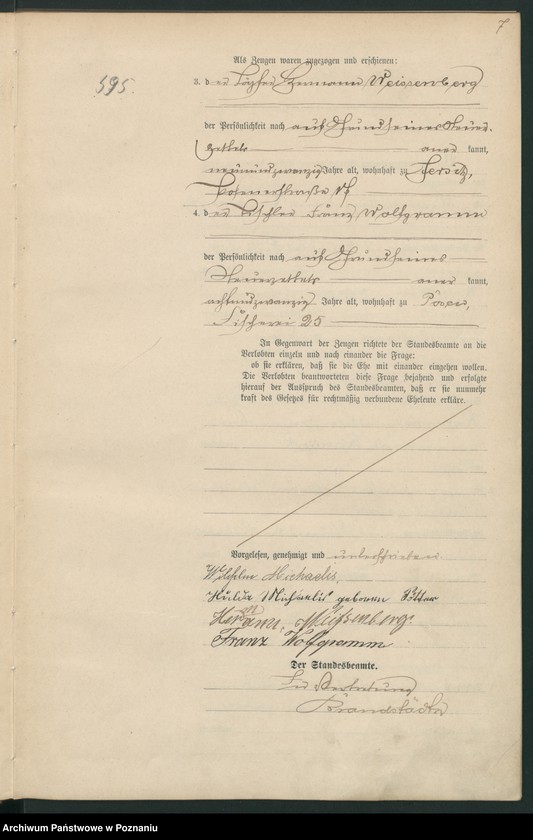 7
Als Zeugen waren zugezogen und erschienen:
595.
3. der Töpfer Hermann Weissenberg
der Persönlichkeit nach auf Grund seines Steuer-
zettels aner kannt,
neunundzwanzig Jahre alt, wohnhaft zu Jersitz,
Posenerstraße
4. der Tischler Franz Wolfgramm
der Persönlichkeit nach auf Grund seines
Steuerzettels aner kannt,
achtundzwanzig Jahre alt, wohnhaft zu Posen,
Fischerei 25
In Gegenwart der Zeugen richtete der Standesbeamte an die
Verlobten einzeln und nach einander die Frage:
ob sie erklären, daß sie die Ehe mit einander eingehen wollen.
Die Verlobten beantworteten diese Frage bejahend und erfolgte
hierauf der Ausspruch des Standesbeamten, daß er sie nunmehr
kraft des Gesetzes für rechtmäßig verbundene Eheleute erkläre.
Vorgelesen, genehmigt und unterschrieben
Wilhelm Michaelis.
Michaelis geborene
Hermann Weissenberg.
Franz Wolfgramm
Der Standesbeamte.
In Vertretung
Brandstädter
Archiwum Państwowe w Poznaniu